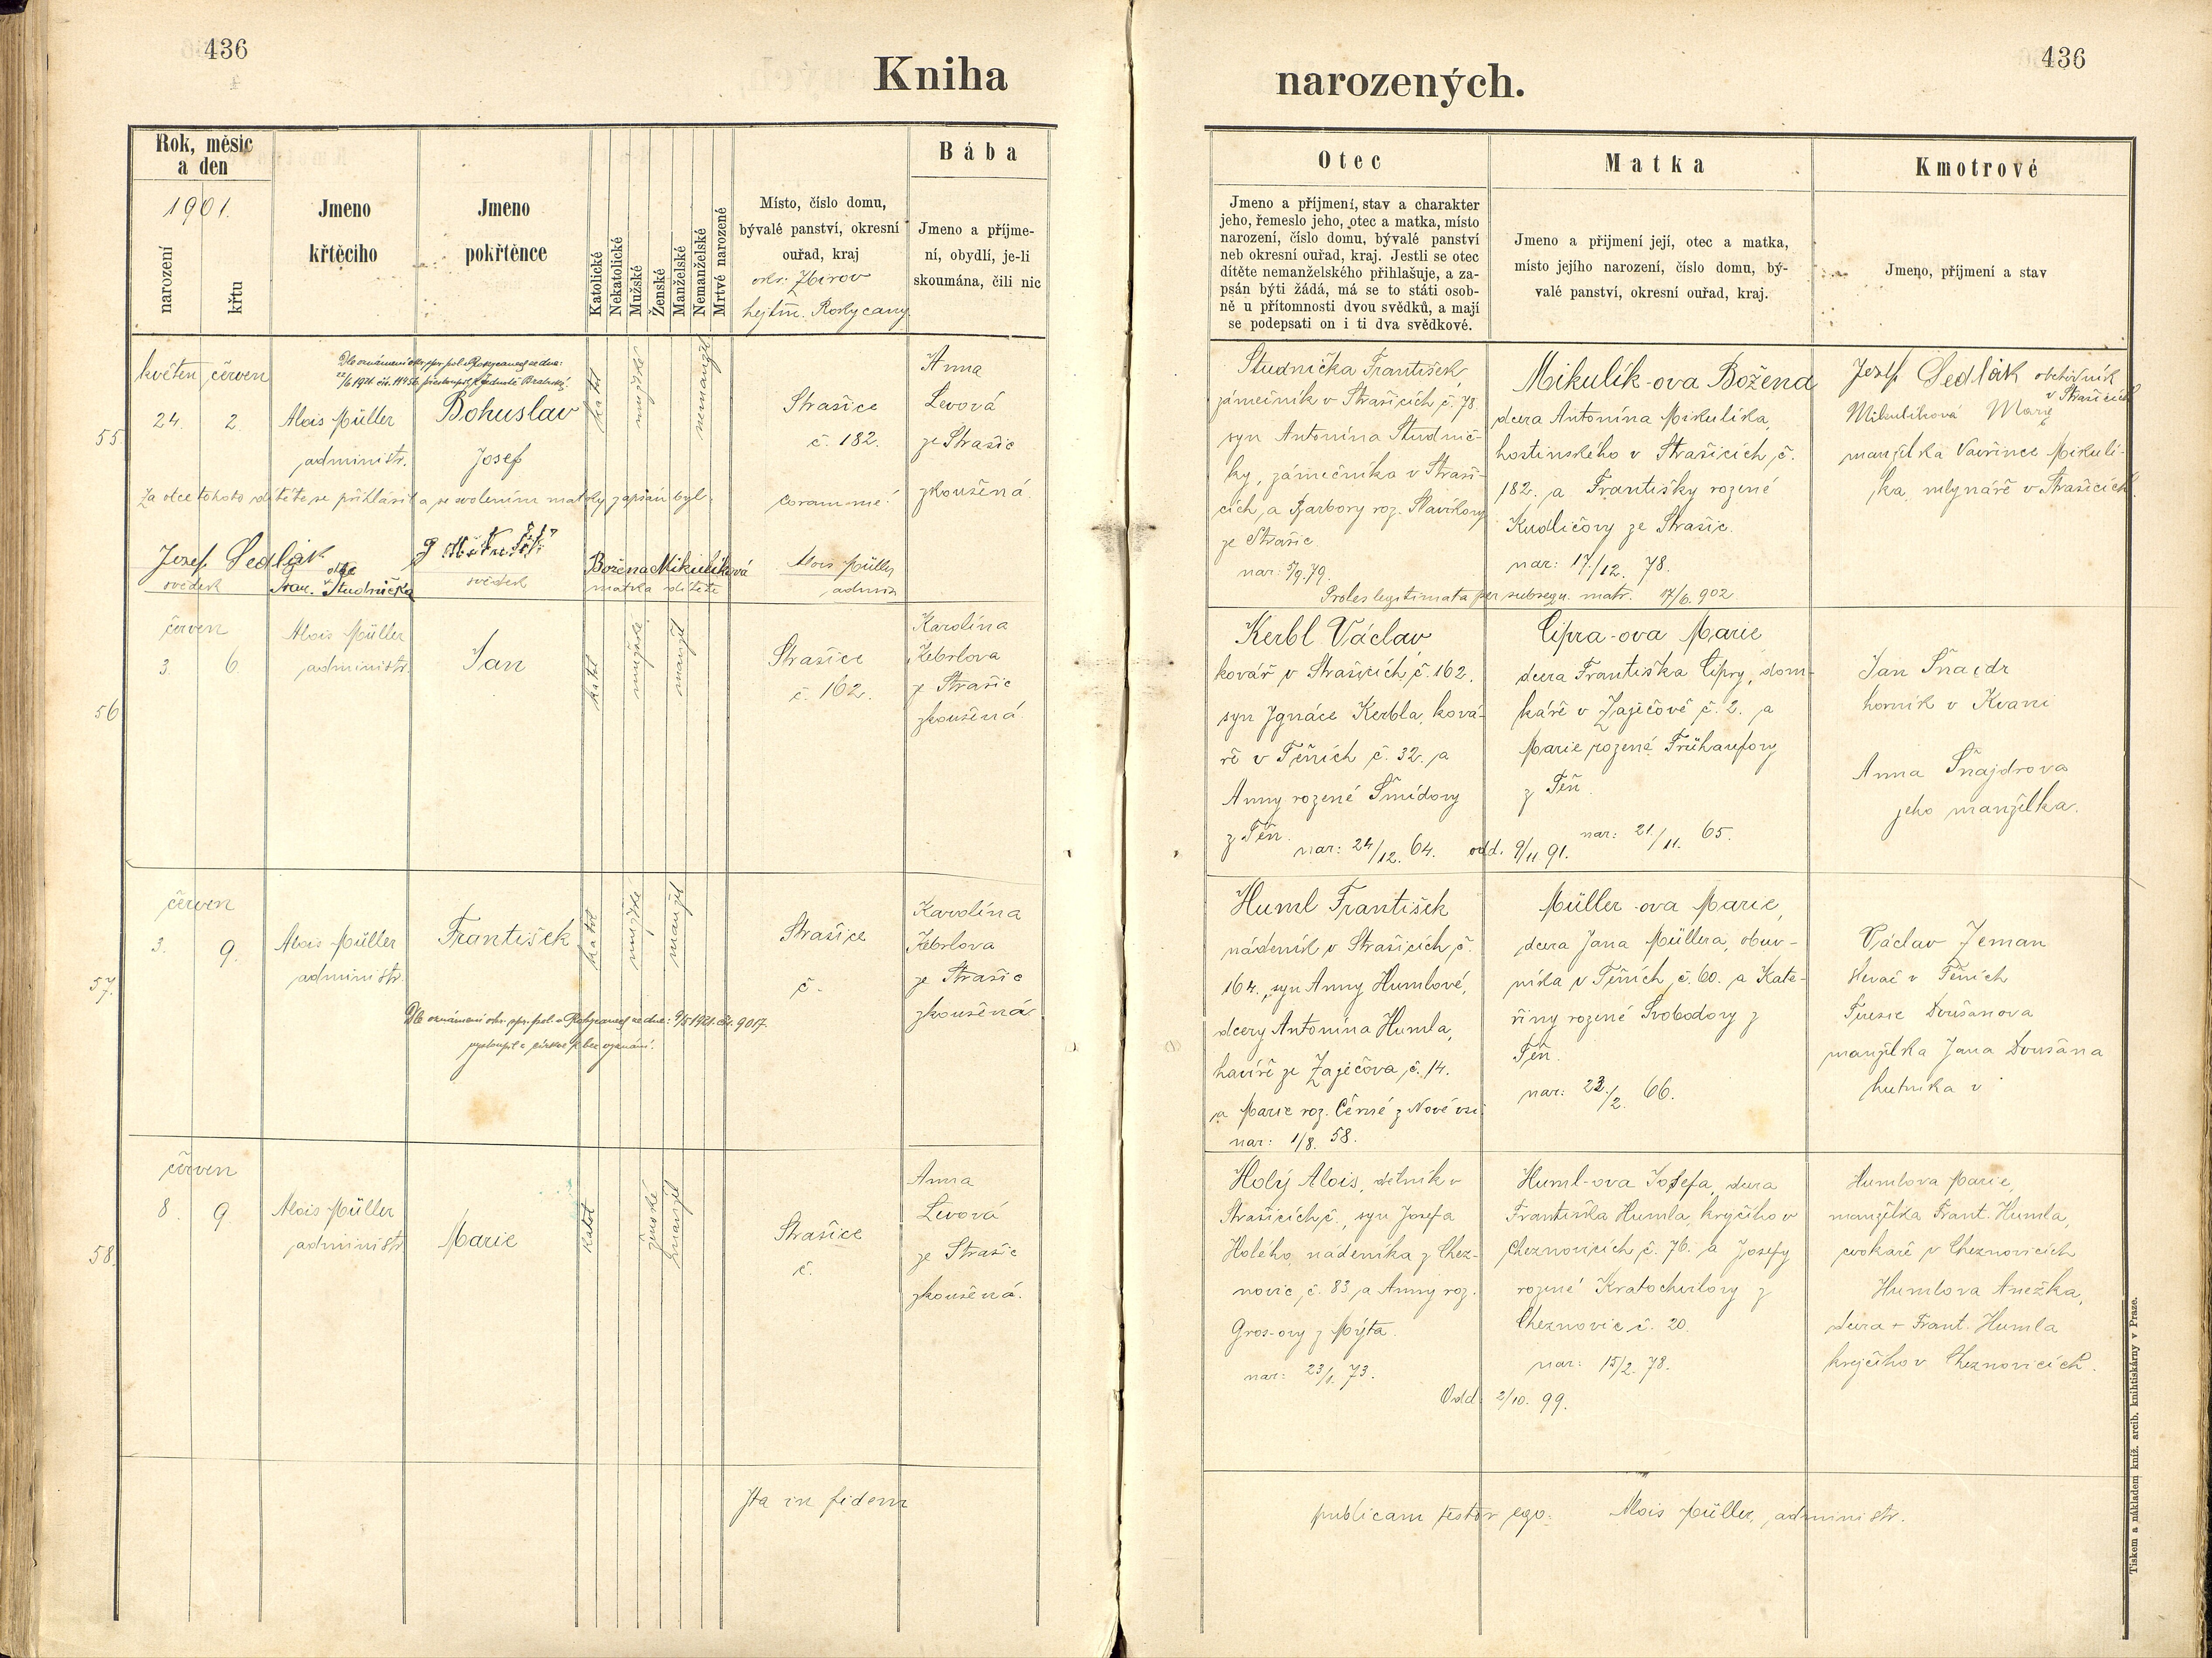 436
Kniha
Rok, měsíc
a den
1901.
narození
křtu
Jmeno
křtěcího
Jmeno
pokřtěnce
Katolické
Nekatolické
Mužské
Ženské
Manželské
Nemanželské
Mrtvě narozené
Místo, číslo domu,
bývalé panství, okresní
ouřad, kraj
okr. Zbirov
hejtm. Rokycany
Bába
Jmeno a příjme-
ní, obydlí, je-li
skoumána, čili nic
55
květen červen
24. 2.
Dle oznámení okr. spr. pol. v Rokycanech ze dne:
Alois Müller
administr.
Bohuslav
Josef
katol
mužské
nemanžel
Strašice
č. 182.
Anna
Levová
ze Strašic
zkoušená.
Za otce tohoto dítěte se přihlásil a se svolením matky zapsán byl
coram me:
Josef Sedlák
svědek
otec
Fran. Studnička
svědek
Božena Mikulíková
matka dítěte
Alois Müller
admin
56
červen
3. 6
Alois Müller
administr.
Jan
katol
mužské
manžel
Strašice
č. 162.
Karolína
Kebrlova
ze Strašic
zkoušená
57.
červen
3. 9.
Alois Müller
administr.
František
katol
mužské
manžel
Strašice
č.
Karolína
Kebrlova
ze Strašic
zkoušená
Dle oznámení okr. spr. pol. v Rokycanech ze dne: 9/5 1921. čís. 9017.
vystoupil z církve a bez vyznání.
58.
červen
8. 9
Alois Müller
administr
Marie
katol
ženské
manžel
Strašice
č.
Anna
Levová
ze Strašic
zkoušená.
Ita in fidem
436
narozených.
Otec
Jmeno a příjmení, stav a charakter
jeho, řemeslo jeho, otec a matka, místo
narození, číslo domu, bývalé panství
neb okresní ouřad, kraj. Jestli se otec
dítěte nemanželského přihlašuje, a za-
psán býti žádá, má se to státi osob-
ně u přítomnosti dvou svědků, a mají
se podepsati on i ti dva svědkové.
Matka
Jmeno a přijmení její, otec a matka,
místo jejího narození, číslo domu, bý-
valé panství, okresní ouřad, kraj.
Kmotrové
Jmeno, příjmení a stav
Studnička František
zámečník v Strašicích č. 78.
syn Antonína Studnič-
ky, zámečníka v Straši-
cích, a Barbory roz. Slavíkovy
ze Strašic
nar: 5/9. 79.
Mikulík-ova Božena
dcera Antonína Mikulíka,
hostinského v Strašicích č.
182. a Františky rozené
Kudličovy ze Strašic.
nar: 17/12. 78.
Proles legitimata per subsequ. matr. 17/6. 902
Josef Sedlák obchodník
v Strašicích
Mikulíková Marie
manželka Vavřince Mikulí-
ka, mlynáře v Strašicích.
Kerbl Václav
kovář v Strašicích, č. 162.
syn Ignáce Kerbla, ková-
ře v Těních č. 32. a
Anny rozené Šmídovy
z Těn.
nar: 24/12. 64.
odd. 9/11 91.
Cipra-ova Marie
dcera Františka Cipry, dom-
káře v Zaječově č. 2. a
Marie rozené Frühaufovy
z Těň.
nar: 21/11. 65.
Jan Šnajdr
horník v Kvani
Anna Šnajdrova
jeho manželka.
Huml František
nádeník v Strašicích č.
164., syn Anny Humlové,
dcery Antonína Humla,
havíře ze Zaječova, č. 14.
a Marie roz. Černé z Nové vsi.
nar: 1/8. 58.
Müller-ova Marie,
dcera Jana Müllera, obuv-
níka v Těních č. 60. a Kate-
řiny rozené Svobodovy z
Těn.
nar: 23/2. 66.
Václav Zeman
slevač v Těních
Terezie Doušanova
manželka Jana Doušana
hutníka v
Holý Alois, dělník v
Strašicích č., syn Josefa
Holého, nádeníka z Chez-
novic, č. 83, a Anny roz.
Gros-ovy z Mýta.
nar: 23/1. 73.
Odd. 2/10. 99.
Huml-ova Josefa, dcera
Františka Humla, krejčího v
Cheznovicích č. 76. a Josefy
rozené Kratochvílovy z
Cheznovic č. 20.
nar: 15/2. 78.
Humlova Marie,
manželka Frant. Humla,
cvokaře v Cheznovicích
Humlova Anežka,
dcera + Frant. Humla
krejčího v Cheznovicích.
publicam testor ego: Alois Müller, administr.
Tiskem a nákladem kníž. arcib. knihtiskárny v Praze.